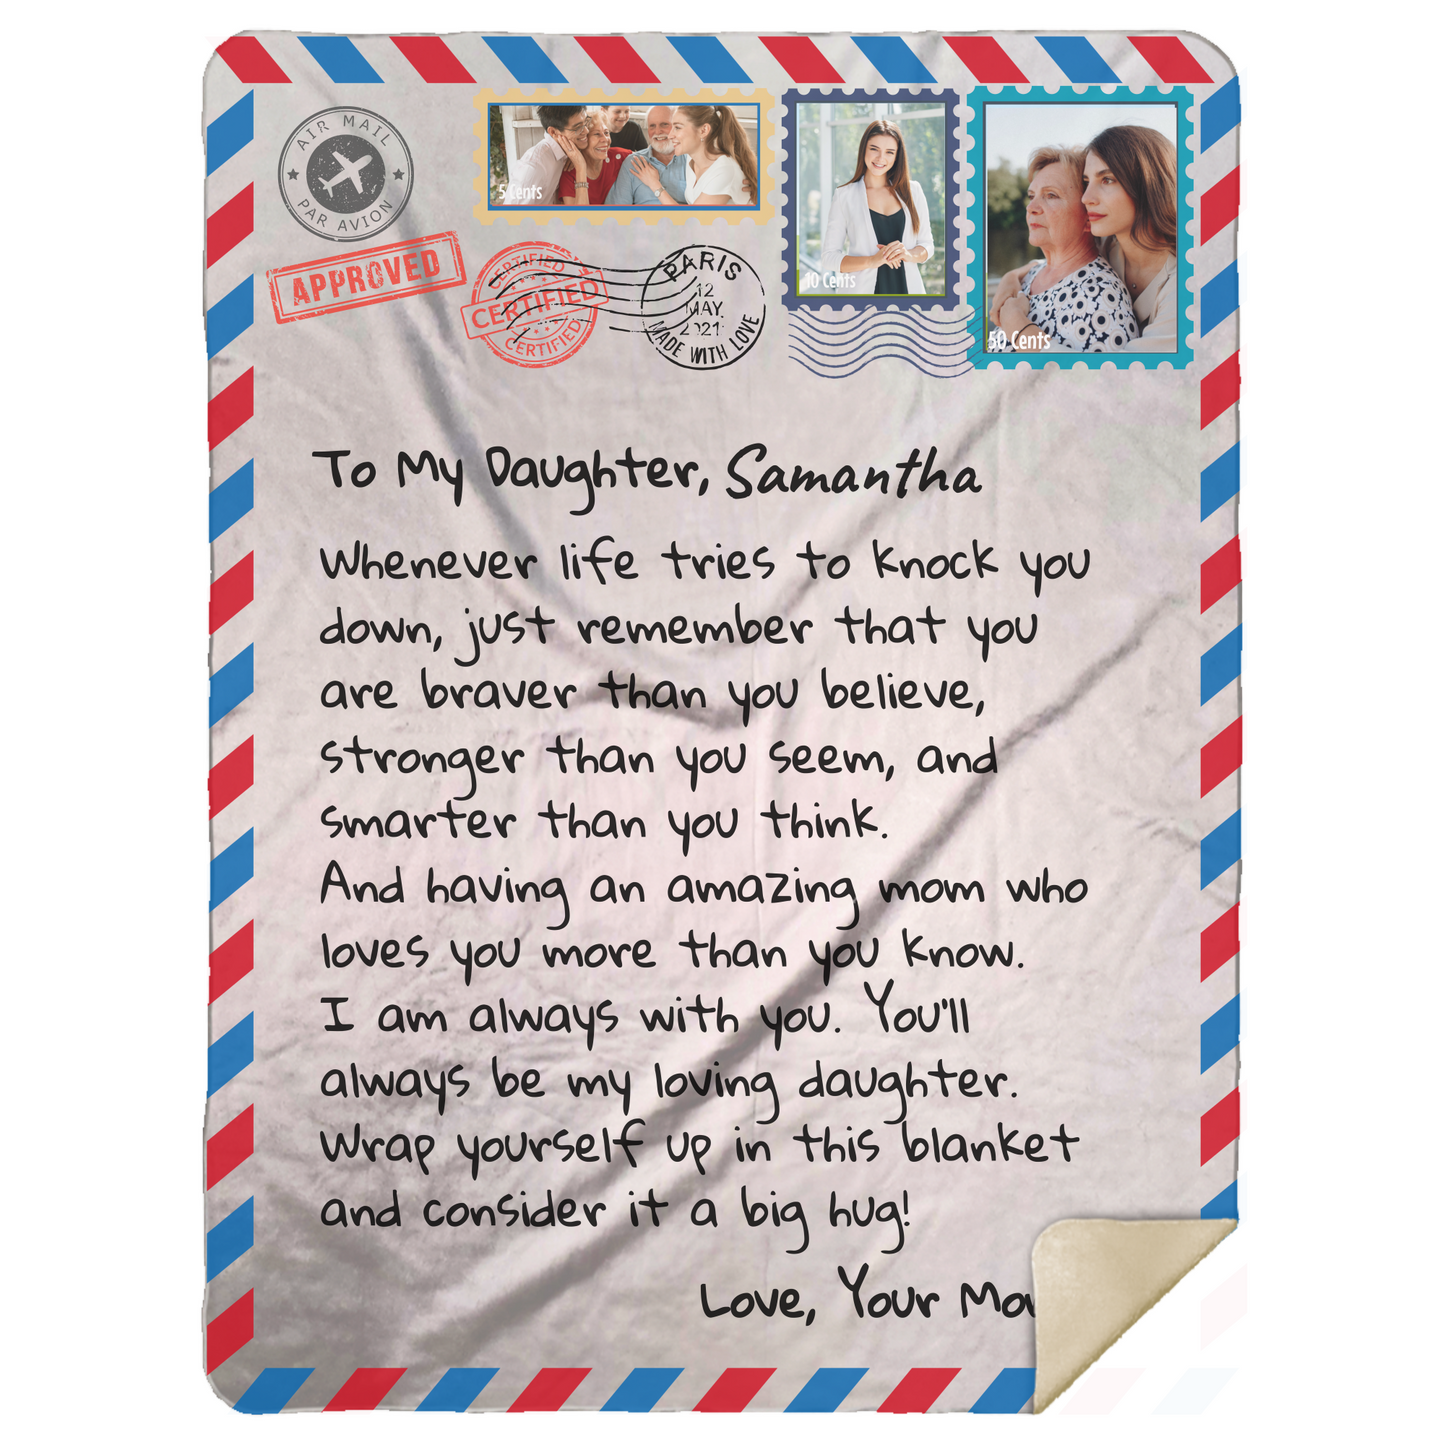 AIR MAIL
PAR AVION
APPROVED
CERTIFIED
CERTIFIED
CERTIFIED
PARIS
12
MAY
2021
MADE WITH LOVE
5 Cents
10 Cents
50 Cents
To My Daughter, Samantha
Whenever life tries to knock you
down, just remember that you
are braver than you believe,
stronger than you seem, and
smarter than you think.
And having an amazing mom who
loves you more than you know.
I am always with you. You'll
always be my loving daughter.
Wrap yourself up in this blanket
and consider it a big hug!
Love, Your